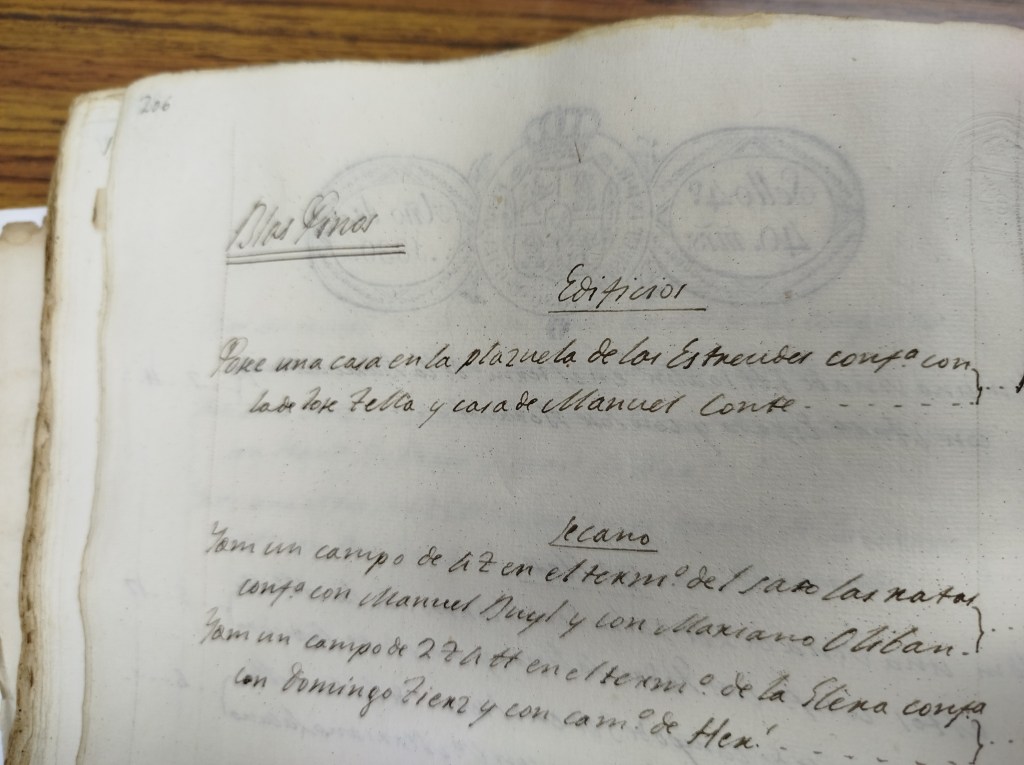 206
Blas Pinos
Edificios
Pone una casa en la plazuela de las Estreudes confª con
la de Jose Zella y casa de Manuel Conte
Secano
Ytem un campo de 4 Z en el termº del saso las ratas
confª con Manuel Buyl y con Mariano Oliban.
Ytem un campo de 2 Z 4 H en el termº de la Elena confª
con Domingo Zienz y con camº de